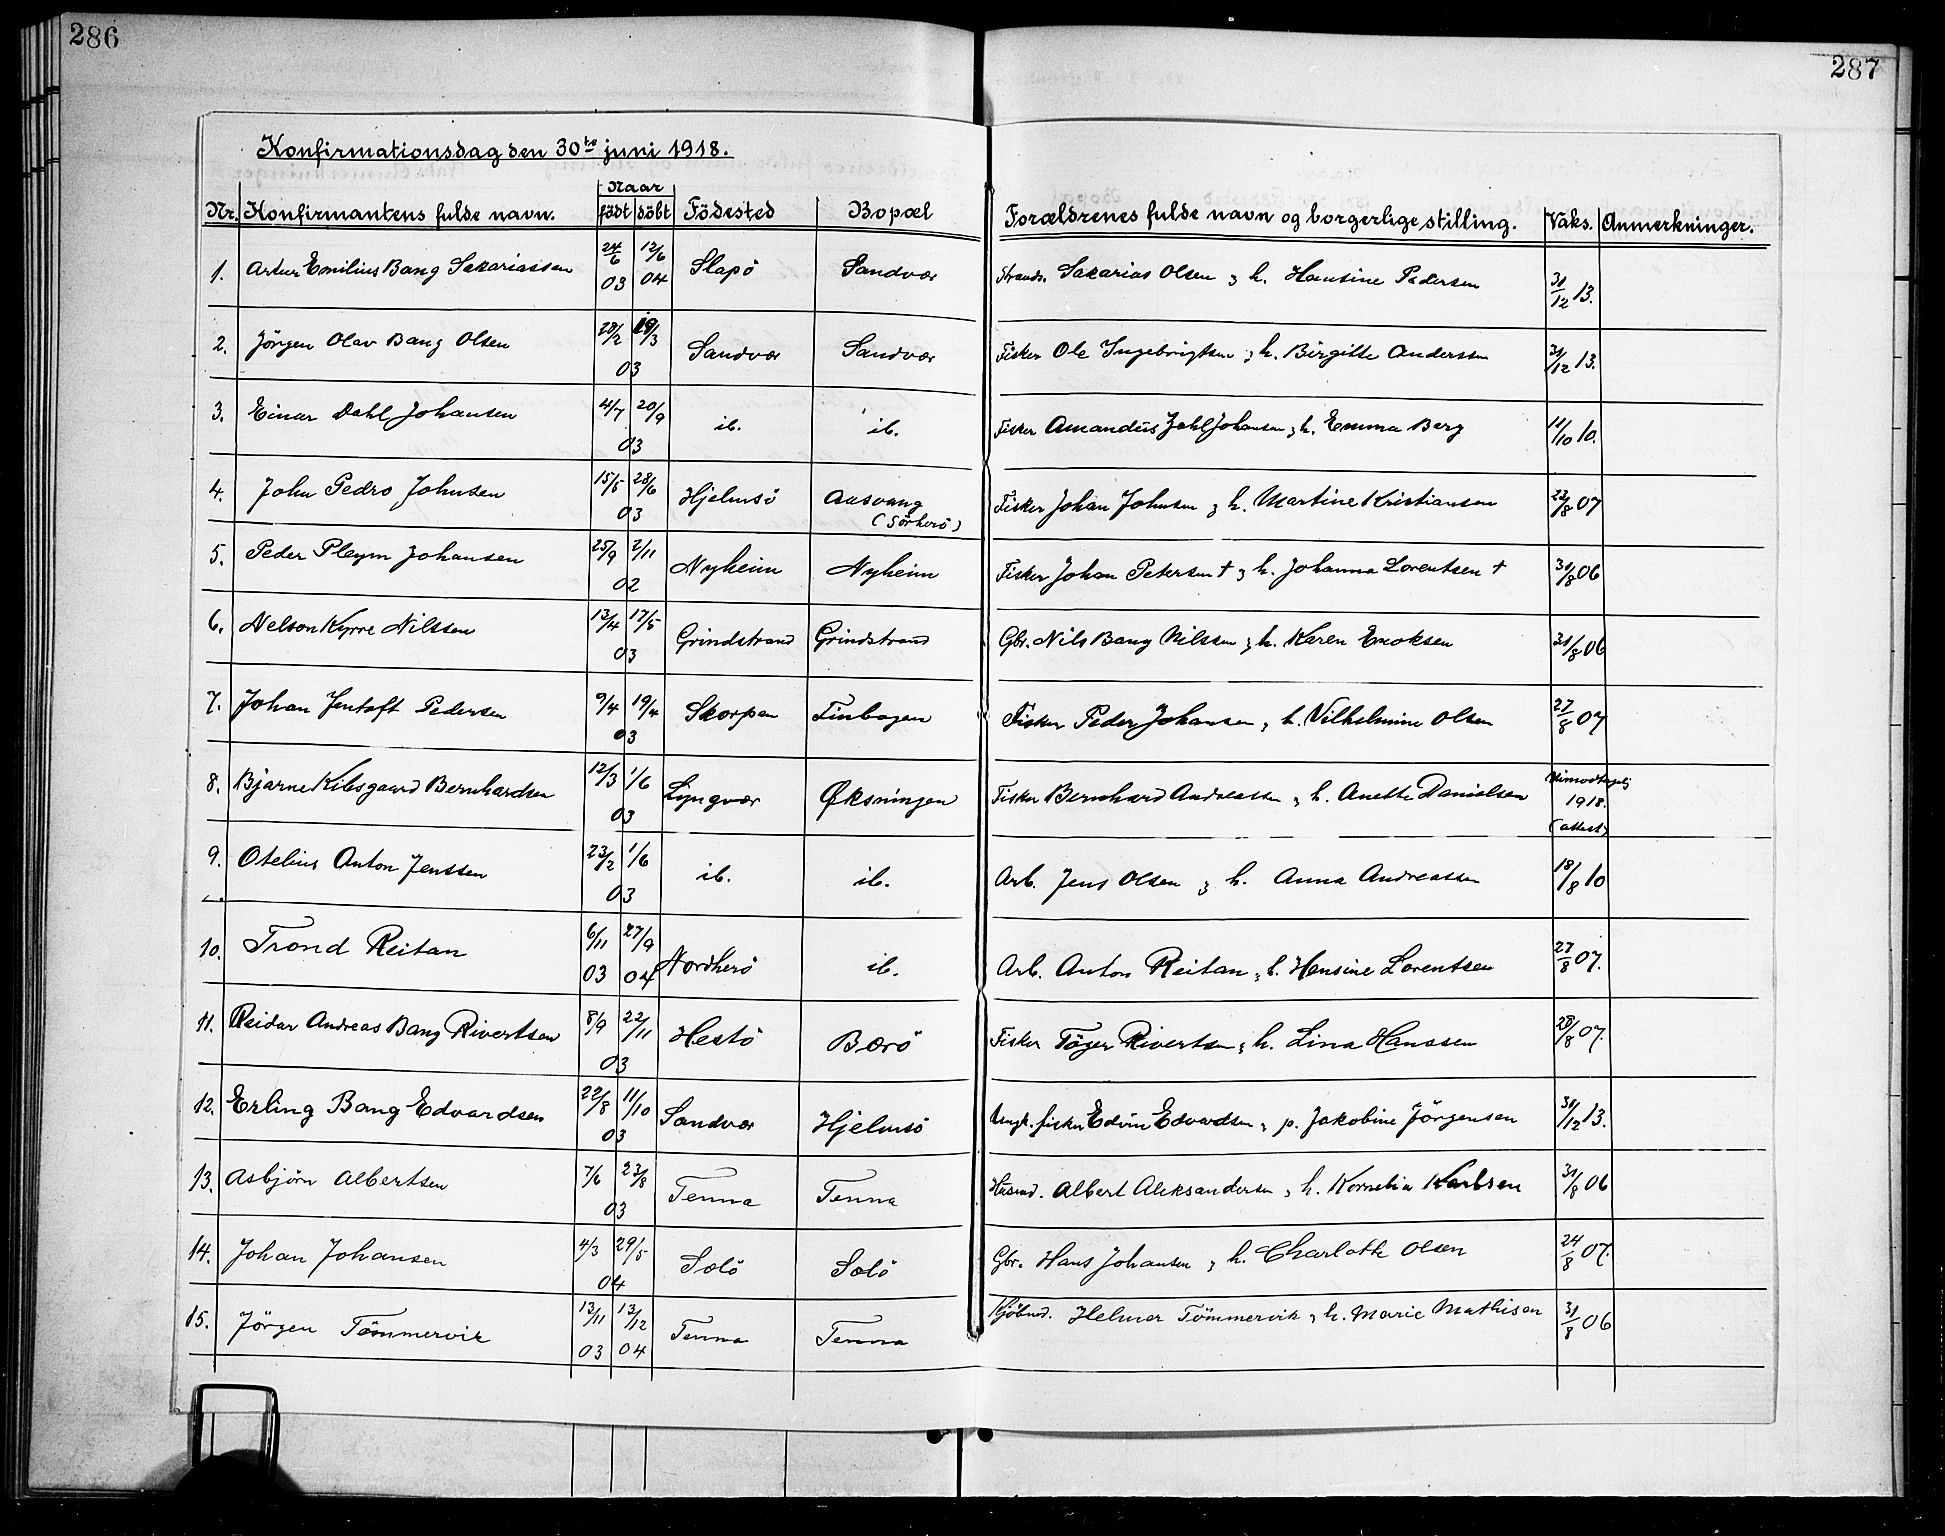 286
287
Konfirmationsdag den 30te juni 1918.
Nr. Konfirmantens fulde navn. Naar födt döbt Födested Bopæl Forældrenes fulde navn og borgerlige stilling. Vaks. Anmerkninger.
1. Artur Emilius Bang Sakariassen 24/6 03 12/6 04 Slapö Sandvær Strands. Sakarias Olsen og h. Hansine Pedersen 31/12 13.
2. Jörgen Olav Bang Olsen 28/2 19/3 03 Sandvær Sandvær Fisker Ole Ingebrigtsen og h. Birgitte Anderssen 31/12 13.
3. Einar Dahl Johansen 4/7 20/9 03 ib. ib. Fisker Amandus Dahl Johansen og h. Emma Berg 11/10 10.
4. John Pedro Johnsen 15/5 28/6 03 Hjelmsö Aasvang (Sörherö) Fisker Johan Johnsen og h. Martine Kristiansen 22/8 07
5. Peder Pleym Johansen 25/9 2/11 02 Nyheim Nyheim Fisker Johan Petersen † og h. Johanna Lorentsen † 31/8 06
6. Nelson Kyrre Nilssen 13/4 17/5 03 Grindstrand Grindstrand Gbr. Nils Bang Nilssen og h. Karen Enoksen 31/8 06
7. Johan Jentoft Pedersen 9/4 19/4 03 Skorpen Finbogen Fisker Peder Johansen og h. Vilhelmine Olsen 27/8 07
8. Bjarne Kilsgaard Bernhardsen 12/3 1/6 03 Lyngvær Øksningen Fisker Bernhard Andreassen og h. Anette Danielsen 1918. (attest)
9. Otelius Anton Jenssen 23/2 1/6 03 ib. ib. Arb. Jens Olsen og h. Anna Andreassen 18/8 10
10. Trond Reitan 6/11 03 27/9 04 Nordherö ib. Arb. Anton Reitan og h. Hansine Lorentsen 27/8 07.
11. Reidar Andreas Bang Rivertsen 8/9 22/11 03 Hestö Bærö Fisker Töger Rivertsen og h. Lina Hanssen 28/8 07.
12. Erling Bang Edvardsen 22/8 11/10 03 Sandvær Hjelmsö Ungk. fisker Edvin Edvardsen og p. Jakobine Jörgensen 31/12 13.
13. Asbjörn Albertsen 7/6 23/8 03 Tenna Tenna Husmd. Albert Aleksandersen og h. Kornelia Karlsen 31/8 06
14. Johan Johansen 4/3 29/5 04 Sölö Sölö Gbr. Hans Johansen og h. Charlotte Olsen 24/8 07.
15. Jörgen Tömmervik 13/11 03 13/12 04 Tenna Tenna Kjöbmd. Helmer Tömmervik og h. Marie Mathisen 31/8 06